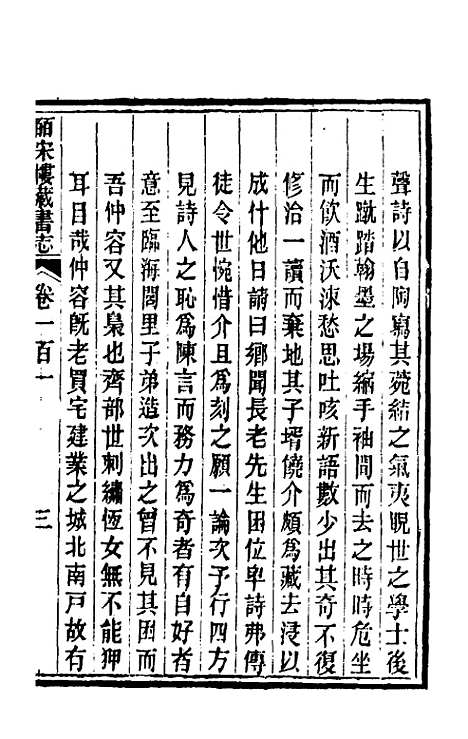 聲詩以自陶寫其菀結之氣夷睨世之學士後
生蹴踏翰墨之場縮手袖間而去之時時危坐
而飲酒沃涑愁思吐咳新語數少出其奇不復
修治一讀而棄地其子壻饒介頗為藏去浸以
成什他日諸曰鄉聞長老先生困位卑詩弗傳
徒令世惋惜介且為刻之願一論次予行四方
見詩人之恥為陳言而務力為奇者有自好者
意至臨海閭里子弟造次出之曾不見其困而
吾仲容又其梟也齊部世刺繡恆女無不能狎
耳目哉仲容旣老買宅建業之城北南戸故有
皕宋樓藏書志
卷一百一
三